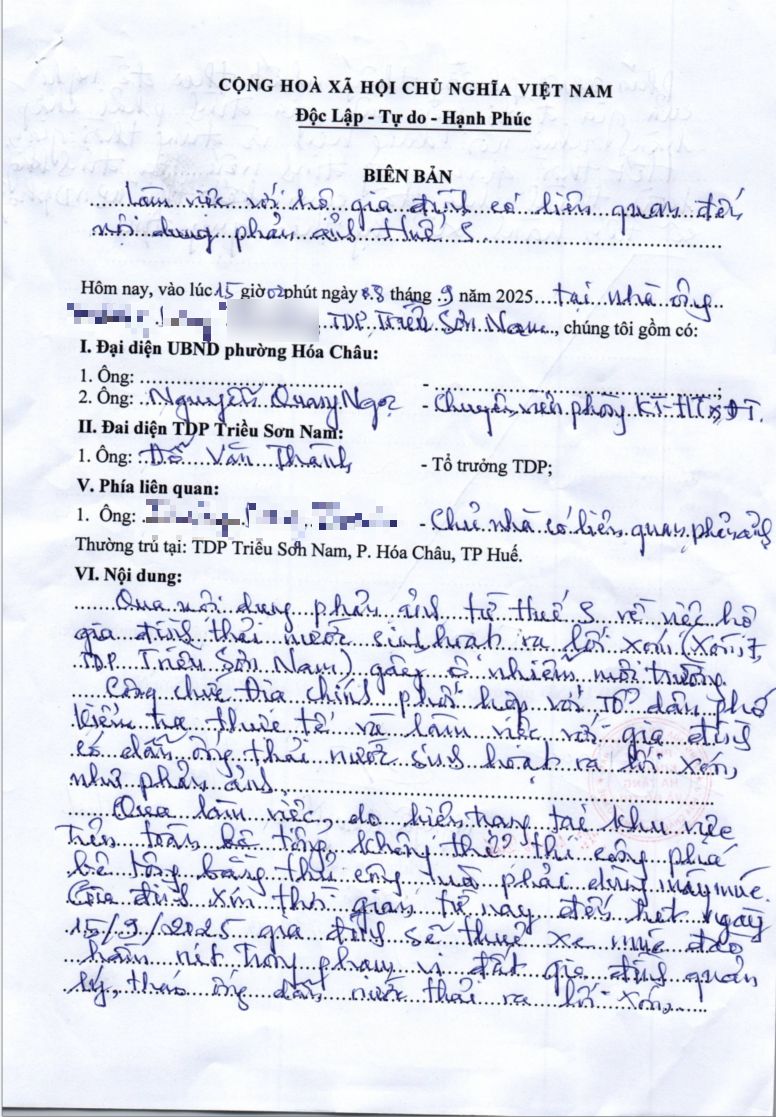 CỘNG HOÀ XÃ HỘI CHỦ NGHĨA VIỆT NAM
Độc Lập - Tự do - Hạnh Phúc
BIÊN BẢN
Làm việc với hộ gia đình có liên quan đến
nội dung phản ảnh Huế S
Hôm nay, vào lúc 15 giờ 02 phút ngày 08 tháng 9 năm 2025 tại nhà ông
TDP Triều Sơn Nam, chúng tôi gồm có:
I. Đại diện UBND phường Hóa Châu:
1. Ông: - ;
2. Ông: Nguyễn Quang Ngọc - Chuyên viên phòng KT-HT&ĐT.
II. Đai diện TDP Triều Sơn Nam:
1. Ông: Đỗ Văn Thành - Tổ trưởng TDP;
V. Phía liên quan:
1. Ông: - Chủ nhà có liên quan phản ảnh
Thường trú tại: TDP Triều Sơn Nam, P. Hóa Châu, TP Huế.
VI. Nội dung:
Qua nội dung phản ảnh từ Huế S về việc hộ
gia đình thải nước sinh hoạt ra lối xóm (Xóm 7,
TDP Triều Sơn Nam) gây ô nhiễm môi trường.
Công chức Địa chính phối hợp với Tổ dân phố
kiểm tra thực tế và làm việc với gia đình
có dẫn ống thải nước sinh hoạt ra lối xóm
như phản ảnh.
Qua làm việc, do hiện trạng tại khu vực
trên toàn bê tông không thể thi công phá
bê tông bằng thủ công mà phải dùng máy múc.
Gia đình xin thời gian từ nay đến hết ngày
15/9/2025 gia đình sẽ thuê xe múc đào
hầm rút trong phạm vi đất gia đình quản
lý, tháo ống dẫn nước thải ra lối xóm.